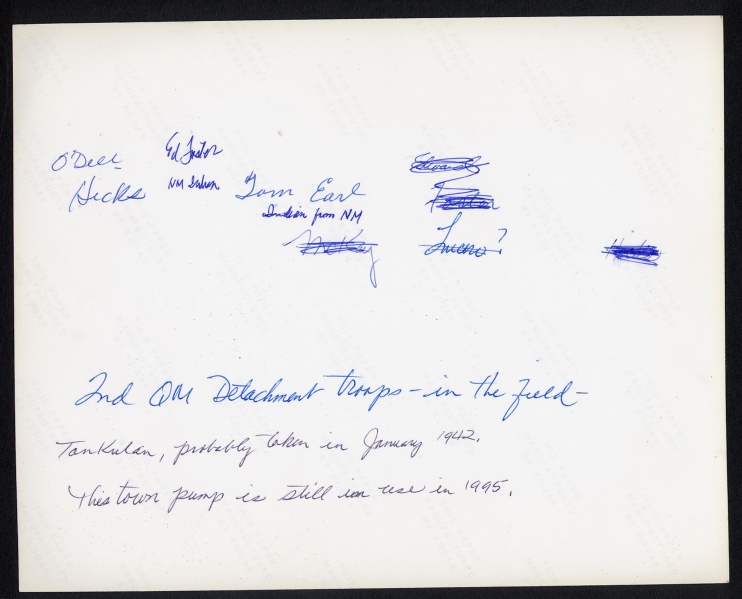 O'Dell Ed
Hicks NM Indian Tom Earl
Indian from NM
McKay Lucero?
2nd QM Detachment troops - in the field -
Tankulan, probably taken in January 1942.
This town pump is still ion use in 1995.